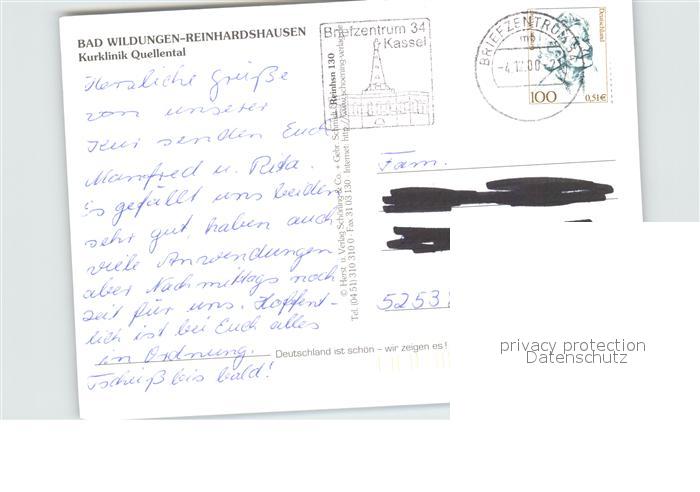 BAD WILDUNGEN-REINHARDSHAUSEN
Kurklinik Quellental
Herzliche Grüße
von unserer
Kur senden Euch
Manfred u. Rita.
Es gefällt uns beiden
sehr gut, haben auch
viele Anwendungen
aber Nachmittags noch
Zeit für uns. Hoffent-
lich ist bei Euch alles
in Ordnung.
Tschüß bis bald!
Deutschland ist schön – wir zeigen es!
Reinhsn 130
© Herst. u. Verlag Schöning & Co. + Gebr. Schmidt
Internet: http://www.schoening-verlag.de
Tel. (04 51) 310 310 0 · Fax 31 03 130
Briefzentrum 34
Kassel
BRIEFZENTRUM 34
-4.12.00
Deutschland
100
0,51€
Fam.
5253
privacy protection
Datenschutz